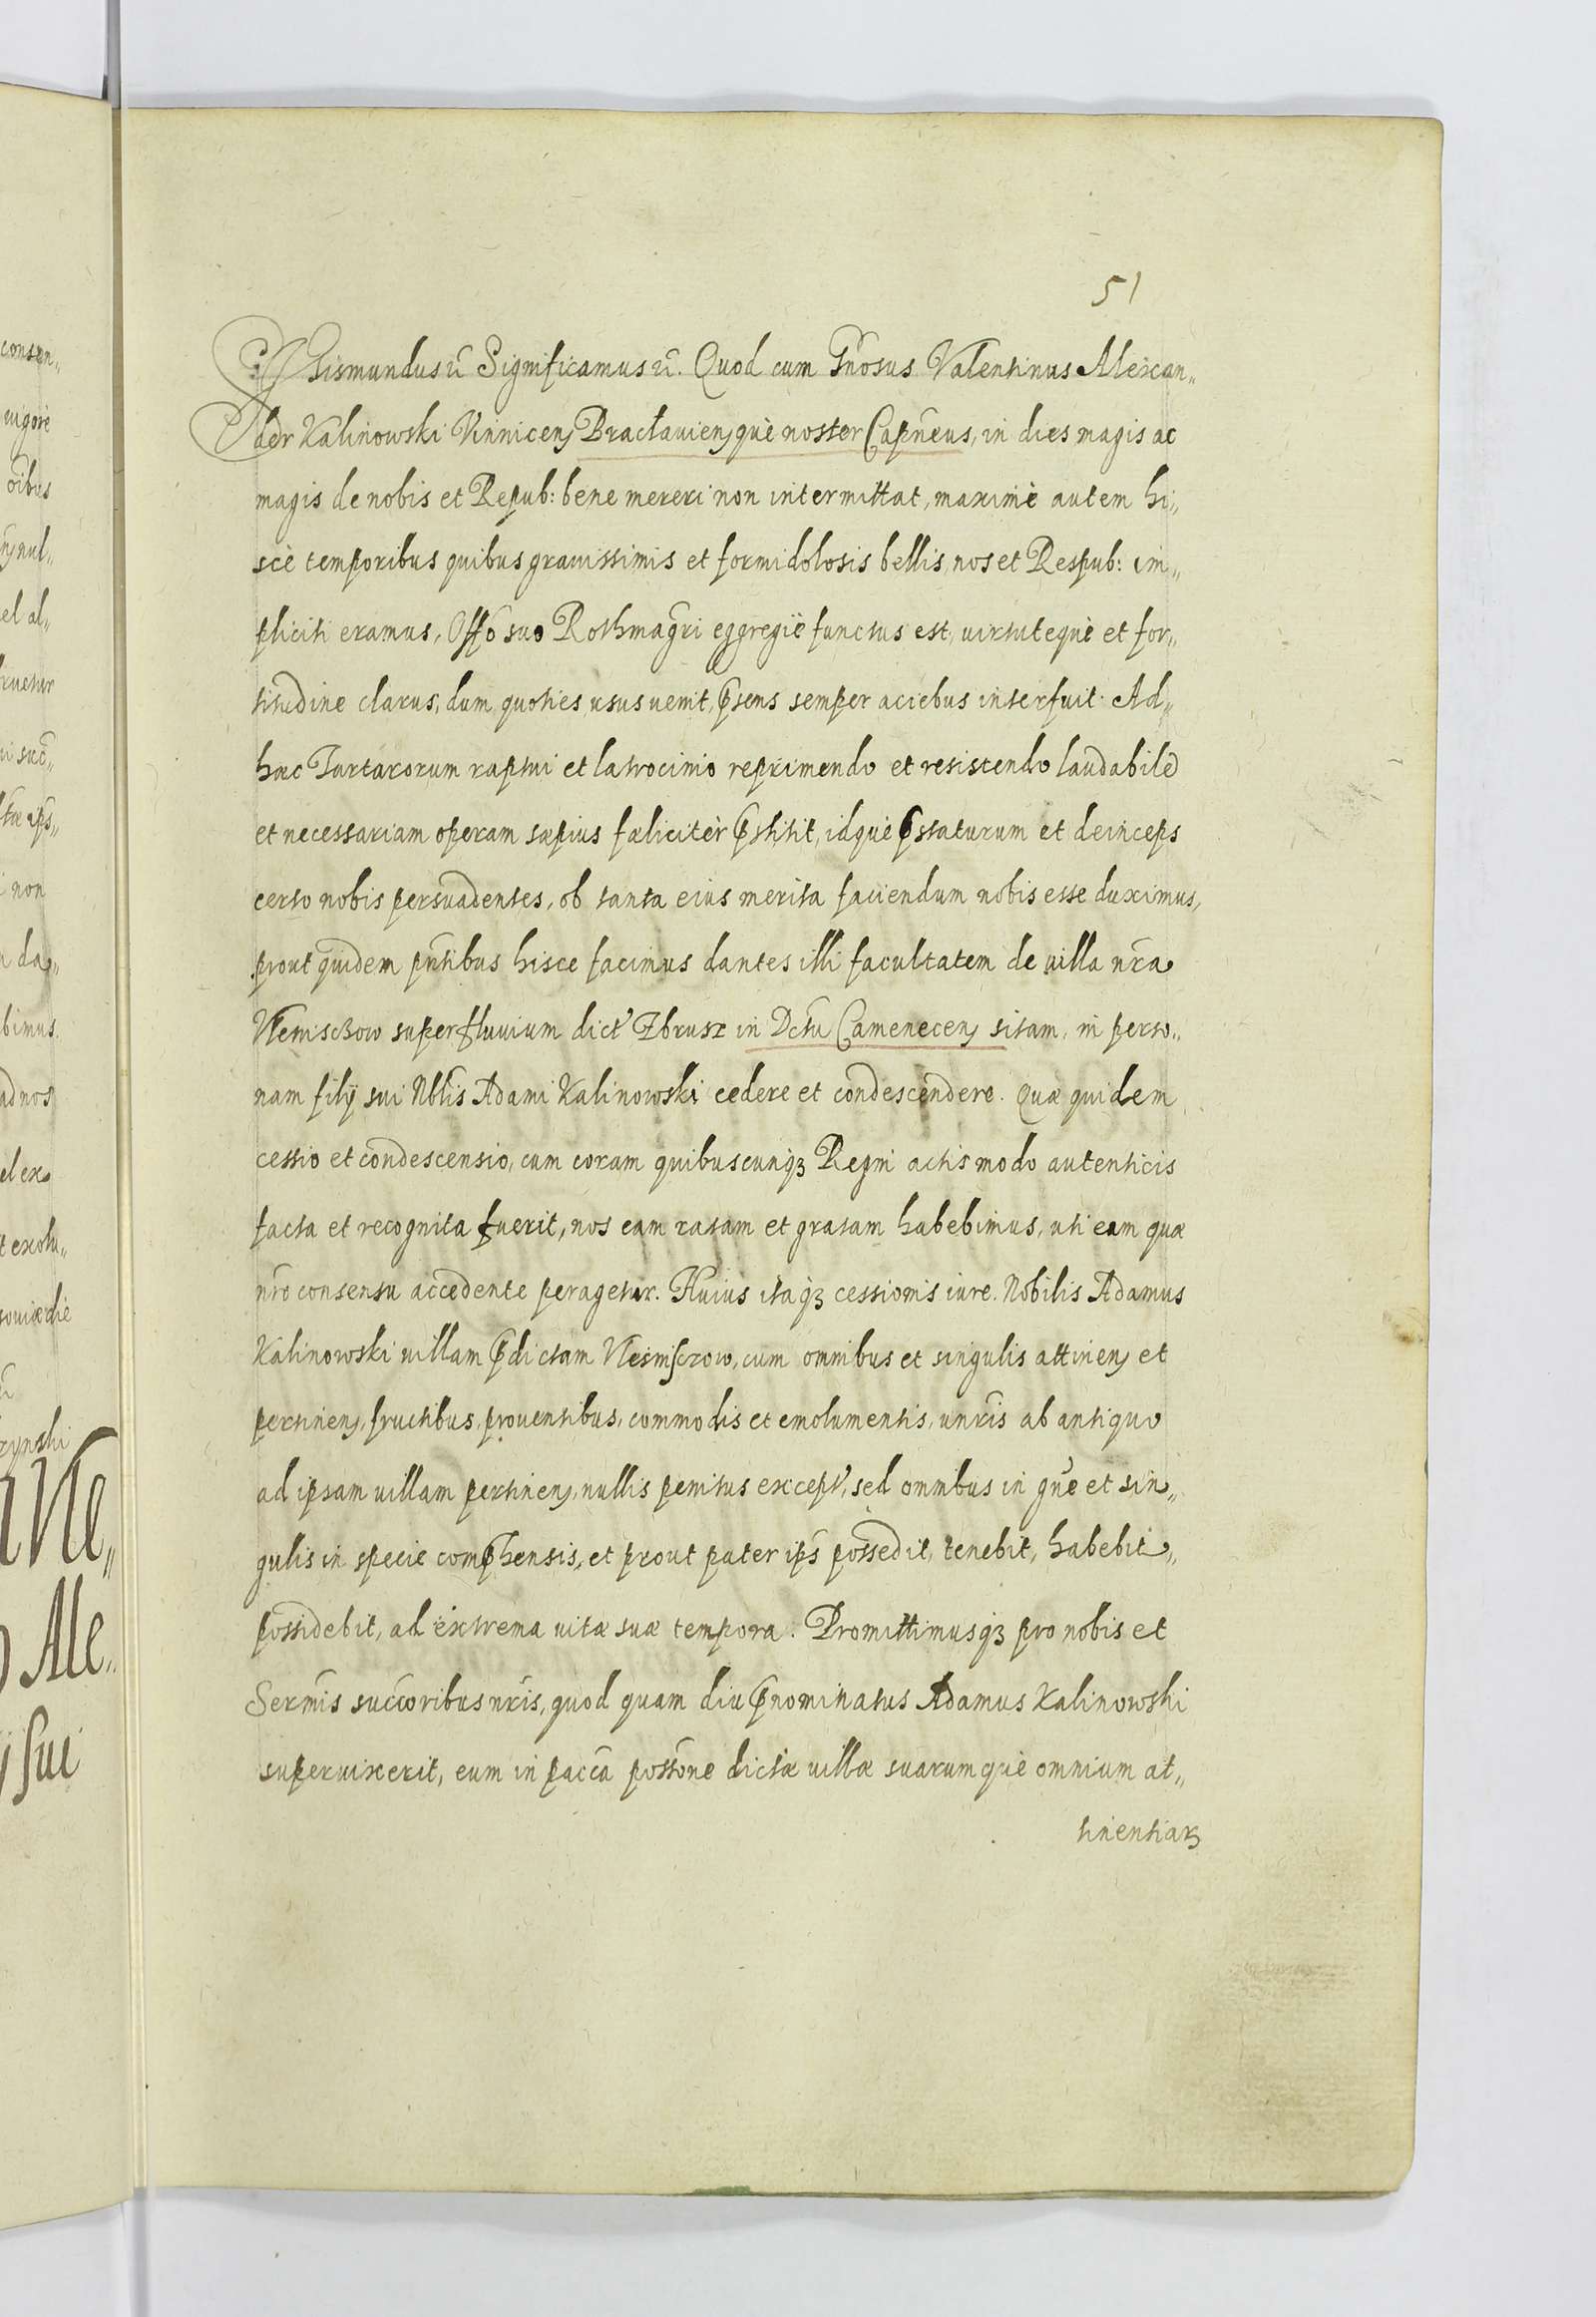 51
Sigismundus etc̃ Significamus etc̃. Quod cum Gñosus Valentinus Alexan„
der Kalinowski Vinnicens Bractauiensquè noster Capñeus, in dies magis ac
magis de nobis et Repub: bene mereri non intermittat, maximè autem hi„
scè temporibus quibus grauissimis et formidolosis bellis nos et Respub: im„
pliciti eramus, Offõ suo Rothmagr̃i eggregiè functus est, uirtutequè et for„
titudine clarus, dum quoties usus uenit, p̃sens semper aciebus interfuit. Ad„
hæc Tartarorum raptui et latrocinio reprimendo et resistendo laudabilẽ
et necessariam operam sæpius fæliciter p̃stitit, idquè p̃staturum et deinceps
certo nobis persuadentes, ob tanta eius merita faciendum nobis esse duximus,
prout quidem pñtibus hisce facimus dantes illi facultatem de uilla nr̃a
Niemsczow super fluuium dict' Zbrusz in Dctũ Camenecens sitam, in perso„
nam filij sui Nblis Adami Kalinowski cedere et condescendere. Quæ quidem
cessio et condescensio, cum coram quibuscunqꝫ Regni actis modo autenticis
facta et recognita fuerit, nos eam ratam et gratam habebimus, uti eam quæ
nr̃o consensu accedente peragetur. Huius itaqꝫ cessionis iure. Nobilis Adamus
Kalinowski uillam p̃dictam Niemsczow, cum omnibus et singulis attinens et
pertinens, fructibus, prouentibus, commodis et emolumentis, unr̃is ab antiquo
ad ipsam uillam pertinens, nullis penitus except', sed omnibus in gñe et sin„
gulis in specie comp̃hensis, et prout pater ip̃s possedit, tenebit, habebit„
possidebit, ad extrema uitæ suæ tempora. Promittimusqꝫ pro nobis et
Serm̃is succ̃oribus nr̃is, quod quam diu p̃nominatus Adamus Kalinowski
superuixerit, eum in pacc̃a poss̃one dictæ uillæ suarumquè omnium at„
tinentiarꝫ